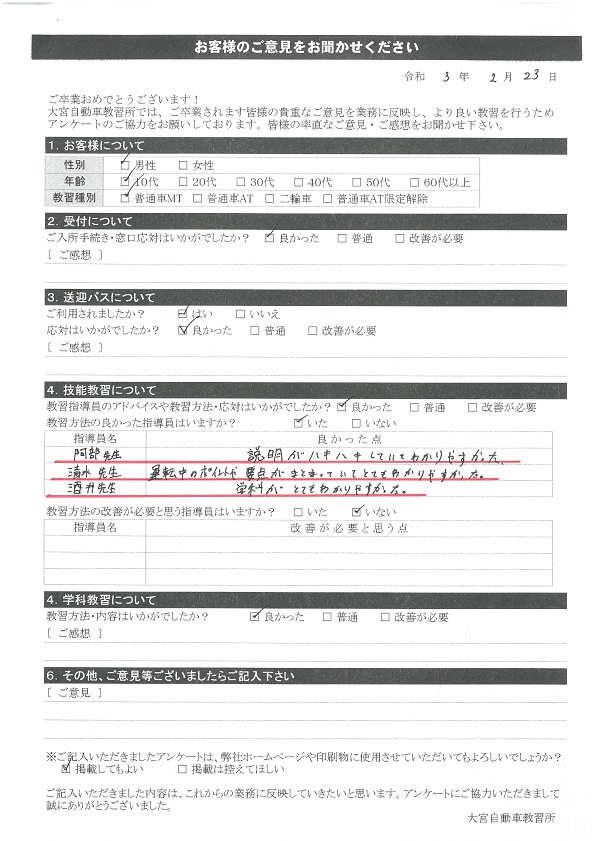 お客様のご意見をお聞かせください
令和 3 年 2 月 23 日
ご卒業おめでとうございます！
大宮自動車教習所では、ご卒業されます皆様の貴重なご意見を業務に反映し、より良い教習を行うため
アンケートのご協力をお願いしております。皆様の率直なご意見・ご感想をお聞かせ下さい。
1. お客様について
性別 ☑男性 □女性
年齢 ☑10代 □20代 □30代 □40代 □50代 □60代以上
教習種別 ☑普通車MT □普通車AT □二輪車 □普通車AT限定解除
2. 受付について
ご入所手続き・窓口応対はいかがでしたか？ ☑良かった □普通 □改善が必要
[ ご感想 ]
3. 送迎バスについて
ご利用されましたか？ ☑はい □いいえ
応対はいかがでしたか？ ☑良かった □普通 □改善が必要
[ ご感想 ]
4. 技能教習について
教習指導員のアドバイスや教習方法・応対はいかがでしたか？ ☑良かった □普通 □改善が必要
教習方法の良かった指導員はいますか？ ☑いた □いない
指導員名 良かった点
阿部先生 説明がハキハキしていてわかりやすかった、
清水先生 運転中のポイントや要点がまとまっていてとてもわかりやすかった。
酒井先生 学科がとてもわかりやすかった。
教習方法の改善が必要と思う指導員はいますか？ □いた ☑いない
指導員名 改善が必要と思う点
4. 学科教習について
教習方法・内容はいかがでしたか？ ☑良かった □普通 □改善が必要
[ ご感想 ]
6. その他、ご意見等ございましたらご記入下さい
[ ご意見 ]
※ご記入いただきましたアンケートは、弊社ホームページや印刷物に使用させていただいてもよろしいでしょうか？
☑掲載してもよい □掲載は控えてほしい
ご記入いただきました内容は、これからの業務に反映していきたいと思います。アンケートにご協力いただきまして
誠にありがとうございました。
大宮自動車教習所